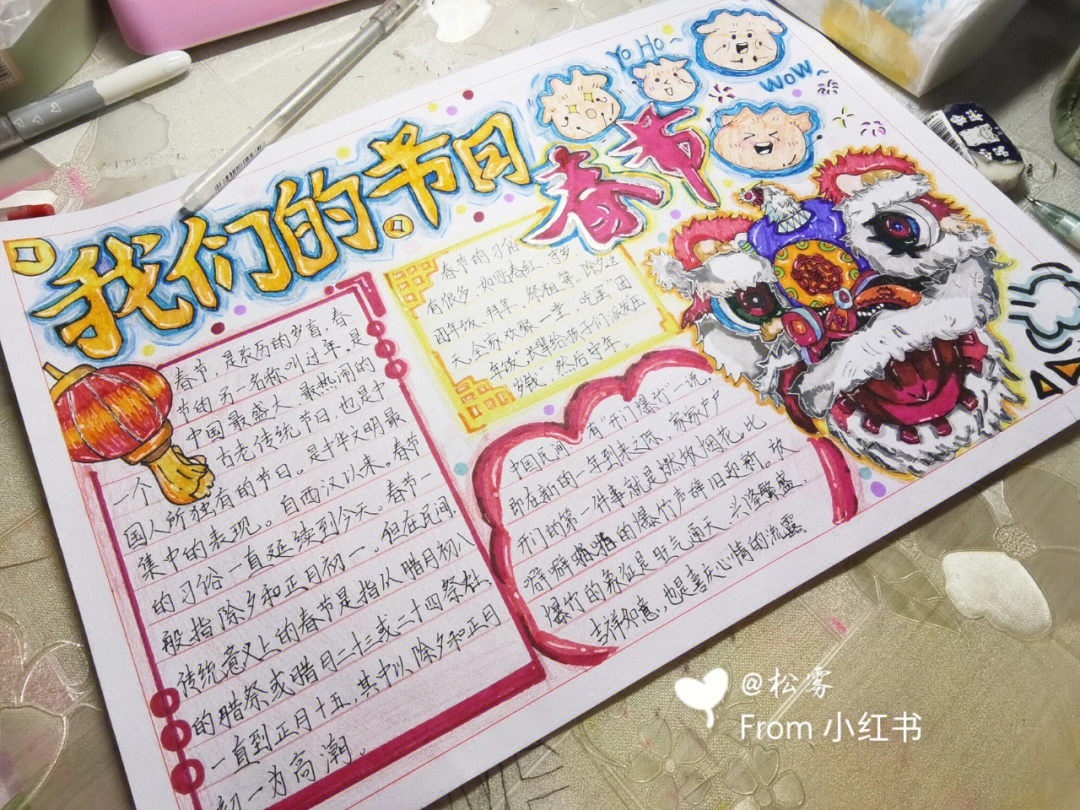 我们的节日
春节
Yo Ho~
WOW~
春节，是农历的岁首，春
节的另一名称叫过年，是
中国最盛大、最热闹的
一个古老传统节日，也是中
国人所独有的节日。是中华文明最
集中的表现。自西汉以来。春节
的习俗一直延续到今天。春节一
般指除夕和正月初一。但在民间，
传统意义上的春节是指从腊月初八
的腊祭或腊月二十三或二十四祭灶，
一直到正月十五，其中以除夕和正月
初一为高潮。
春节的习俗
有很多，如贴春联、守岁、
团年饭、拜年、祭祖等。除夕这
天全家欢聚一堂，吃蛋"团
年饭"，长辈给孩子们派发压
岁钱"，然后守年。
中国民间，有"开门爆竹"一说，
即在新的一年到来之际，家家户户
开门的第一件事就是燃放烟花，比
噼噼啪啪的爆竹声辞旧迎新。放
爆竹的象征是財气通天、兴隆繁盛、
吉祥如意，也是喜庆心情的流露
@松雾
From 小红书